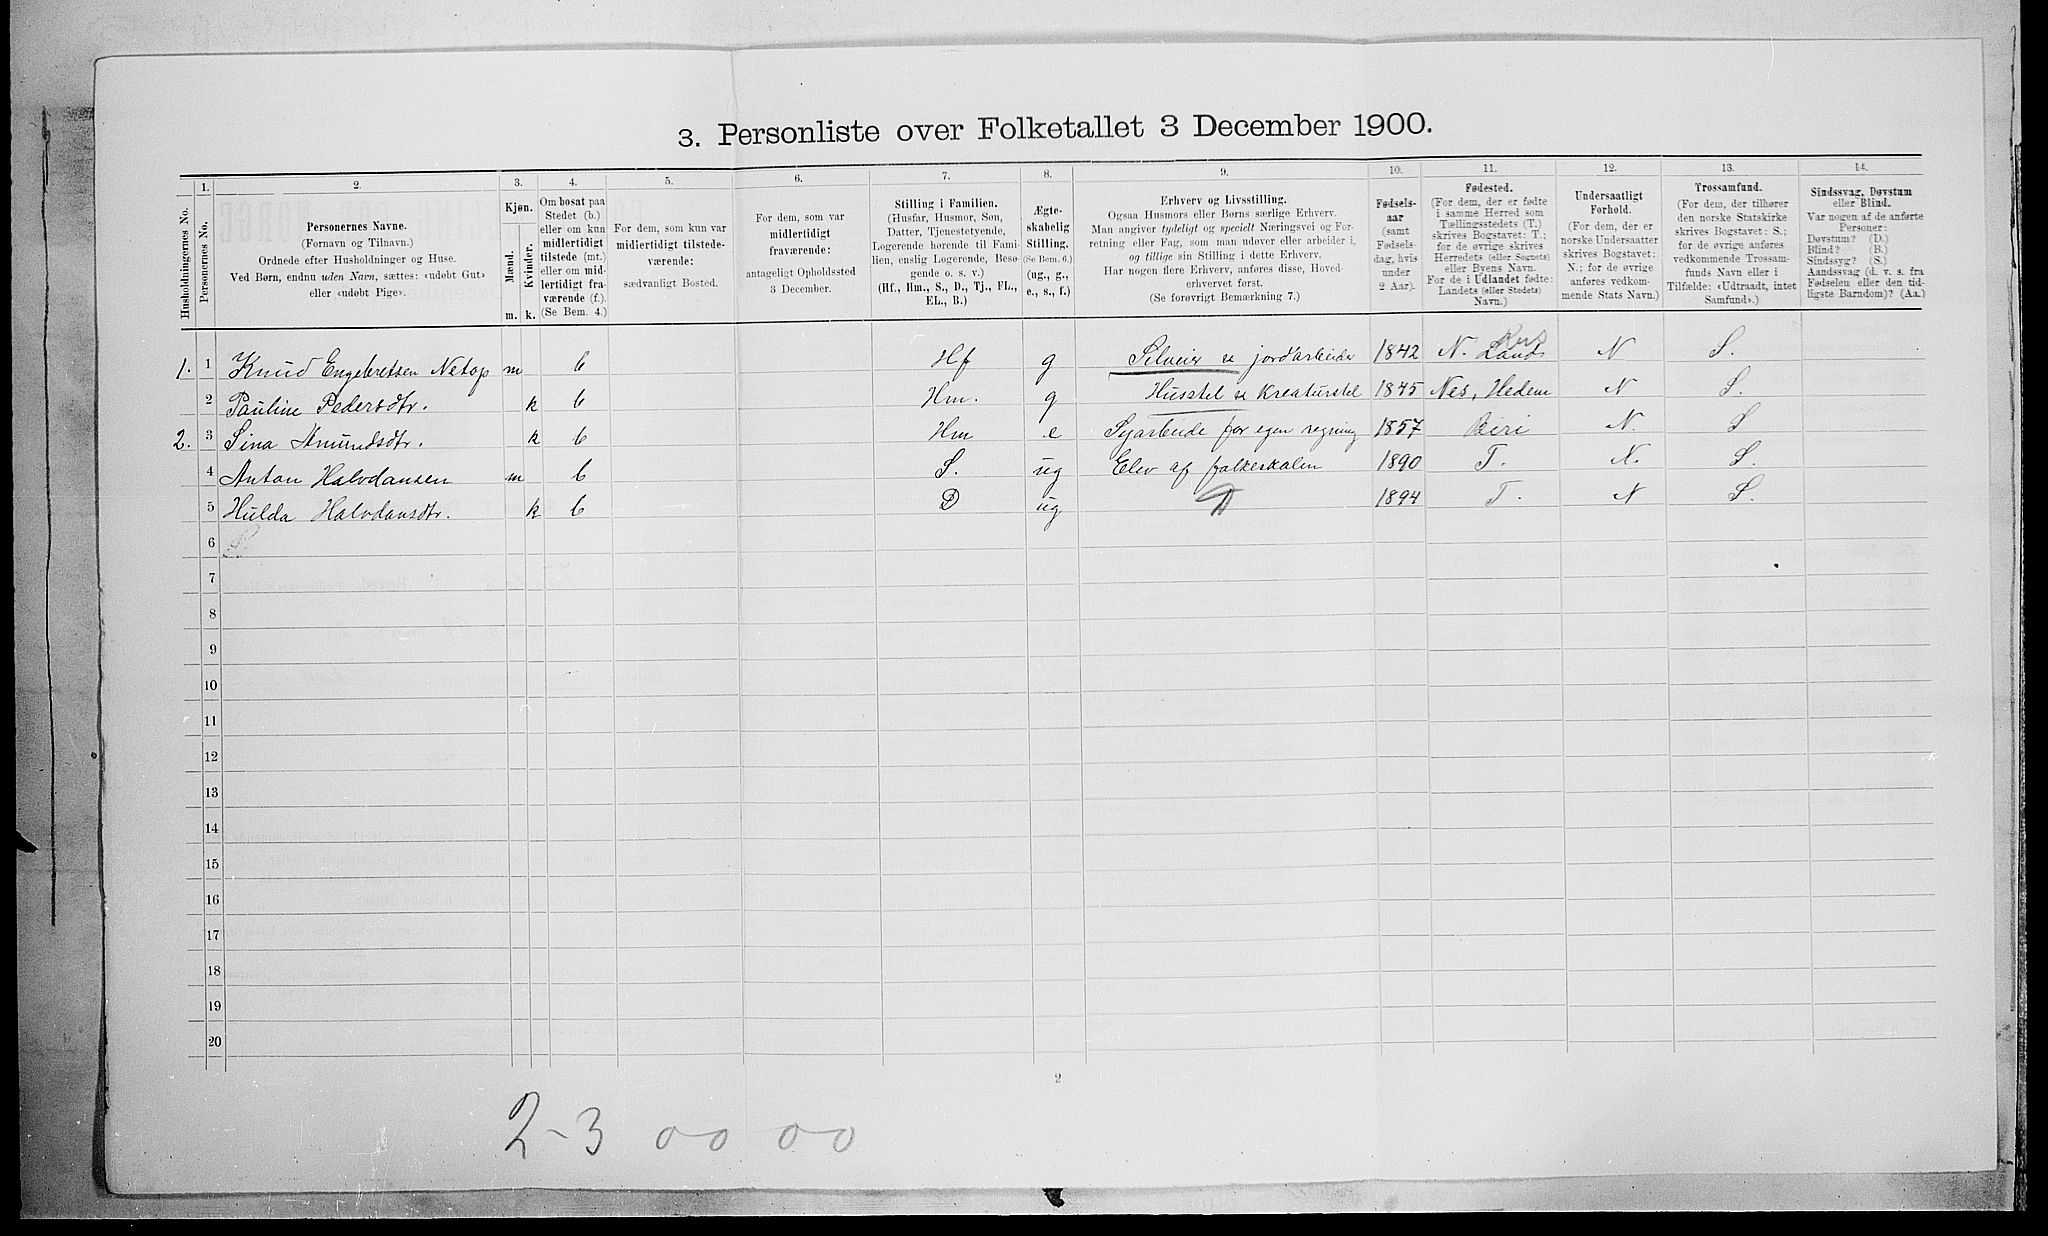 3. Personliste over Folketallet 3 December 1900.
Husholdningernes No.
1. Personernes No.
2. Personernes Navne. (Fornavn og Tilnavn.) Ordnede efter Husholdninger og Huse. Ved Børn, endnu uden Navn, sættes: «udøbt Gut» eller «udøbt Pige».
3. Kjøn. Mænd. m. Kvinder. k.
4. Om bosat paa Stedet (b.) eller om kun midlertidigt tilstede (mt.) eller om midlertidigt fraværende (f.) (Se Bem. 4.)
5. For dem, som kun var midlertidigt tilstedeværende: sædvanligt Bosted.
6. For dem, som var midlertidigt fraværende: antageligt Opholdssted 3 December.
7. Stilling i Familien. (Husfar, Husmor, Søn, Datter, Tjenestetyende, Logerende hørende til Familien, enslig Logerende, Besøgende o. s. v.) (Hf., Hm., S., D., Tj., FL., EL., B.)
8. Ægteskabelig Stilling. (Se Bem. 6.) (ug., g., e., s., f.)
9. Erhverv og Livsstilling. Ogsaa Husmors eller Børns særlige Erhverv. Man angiver tydeligt og specielt Næringsvei og Forretning eller Fag, som man udøver eller arbeider i, og tillige sin Stilling i dette Erhverv. Har nogen flere Erhverv, anføres disse, Hovederhvervet først. (Se forøvrigt Bemærkning 7.)
10. Fødselsaar (samt Fødselsdag, hvis under 2 Aar).
11. Fødested. (For dem, der er fødte i samme Herred som Tællingsstedets (T.) skrives Bogstavet: T.; for de øvrige skrives Herredets (eller Sognets) eller Byens Navn. For de i Udlandet fødte: Landets (eller Stedets) Navn.)
12. Undersaatligt Forhold. (For dem, der er norske Undersaatter skrives Bogstavet: N.; for de øvrige anføres vedkommende Stats Navn.)
13. Trossamfund. (For dem, der tilhører den norske Statskirke skrives Bogstavet: S.; for de øvrige anføres vedkommende Trossamfunds Navn eller i Tilfælde: «Udtraadt, intet Samfund».)
14. Sindssvag, Døvstum eller Blind. Var nogen af de anførte Personer: Døvstum? (D.) Blind? (B.) Sindssyg? (S.) Aandssvag (d. v. s. fra Fødselen eller den tidligste Barndom)? (Aa.)
1. 1 Knud Engebretsen Netop m b Hf g jordarbeider 1842 N. Land N S.
2 Pauline Pedersdtr. k b Hm. g Husstel & Kreaturstel 1845 Nes, Hedem N S.
2. 3 Sina Amundsdtr. k b Hm e Syarbeide for egen regning 1857 Biri N. S
4 Anton Halvdansen m b S. ug Elev af folkeskolen 1890 T. N. S.
5 Hulda Halvdansdtr. k b D ug 1894 T. N S.
6
7
8
9
10
11
12
13
14
15
16
17
18
19
20
2
2-3 00 00